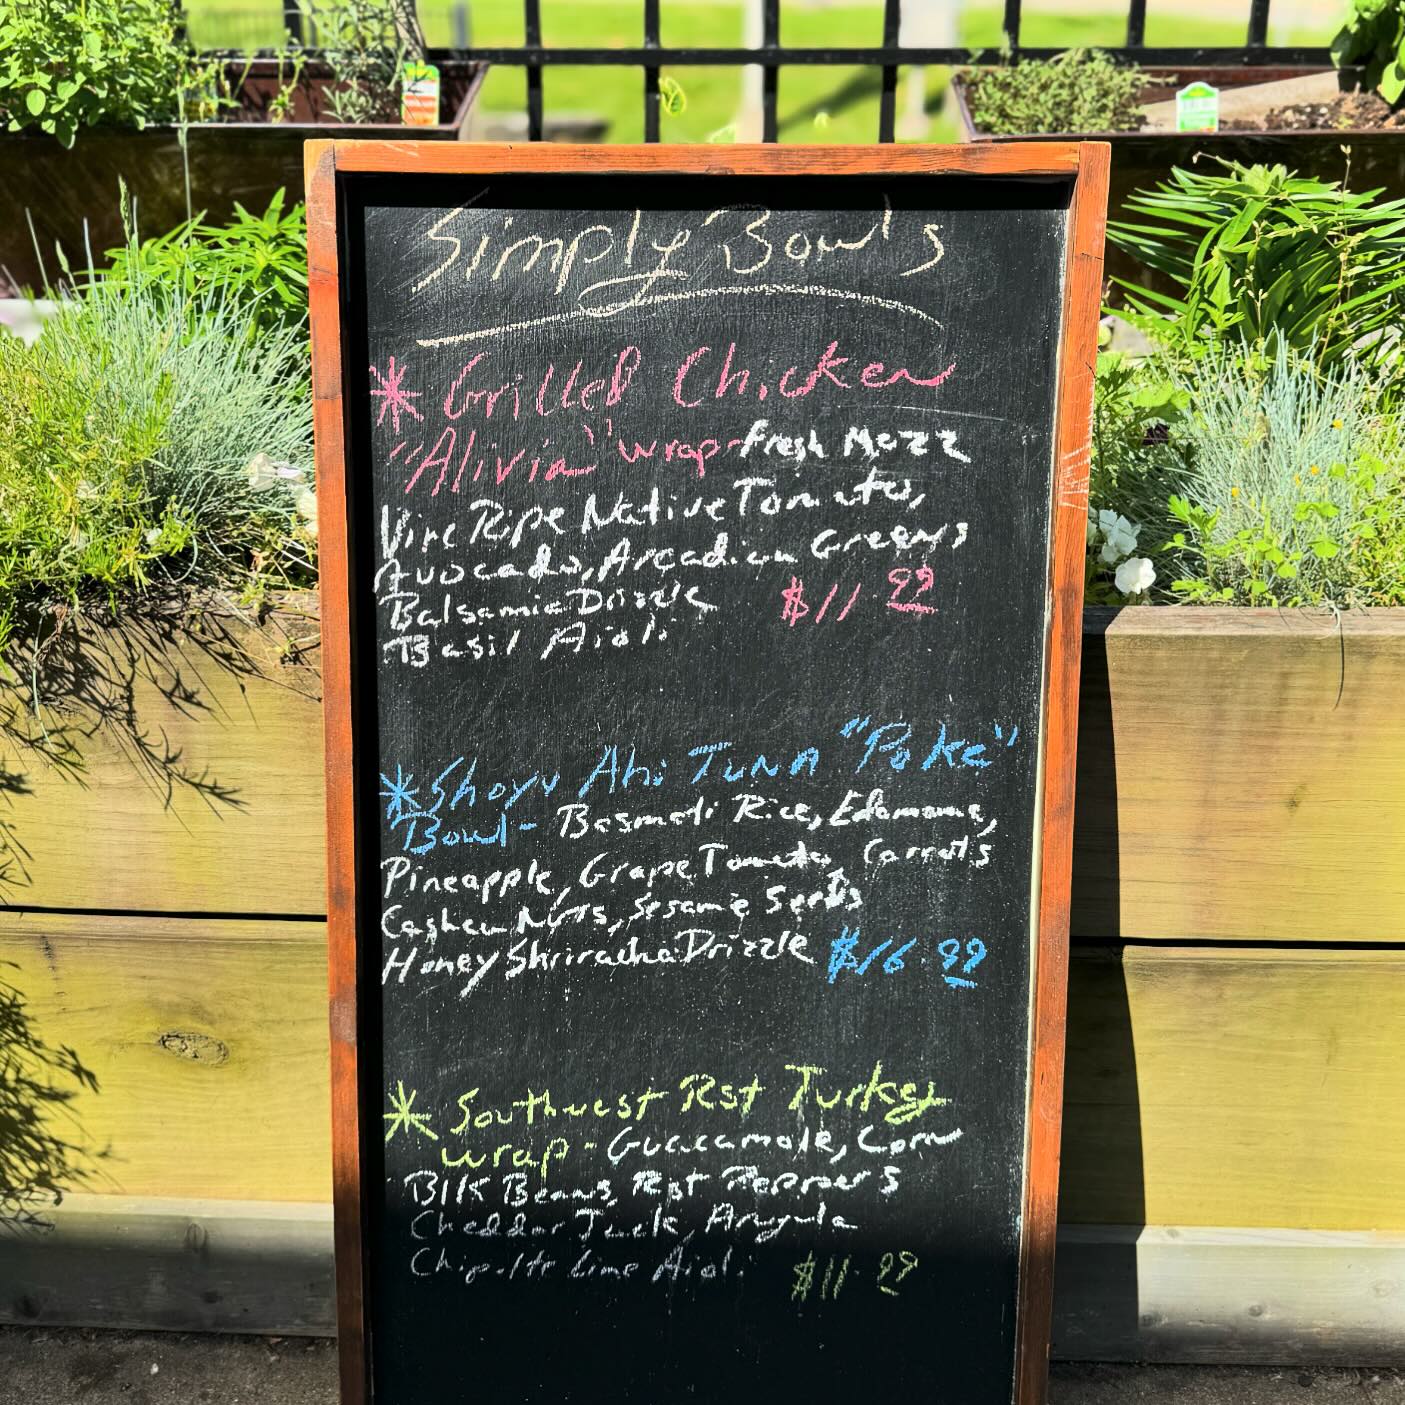 Simply Bowls
* Grilled Chicken
"Alivia" wrap-fresh Mozz
Vine Ripe Native Tomato,
Avocado, Arcadian Greens
Balsamic Drizzle $11.99
Basil Aioli
* Shoyu Ahi Tuna "Poke"
Bowl- Basmati Rice, Edamame,
Pineapple, Grape Tomato, Carrots
Cashew Nuts, Sesame Seeds
Honey Shriracha Drizzle $16.99
* Southwest Rst Turkey
wrap- Guacamole, Corn
Blk Beans, Rst Peppers
Cheddar Jack, Arugula
Chipotle Lime Aioli $11.99